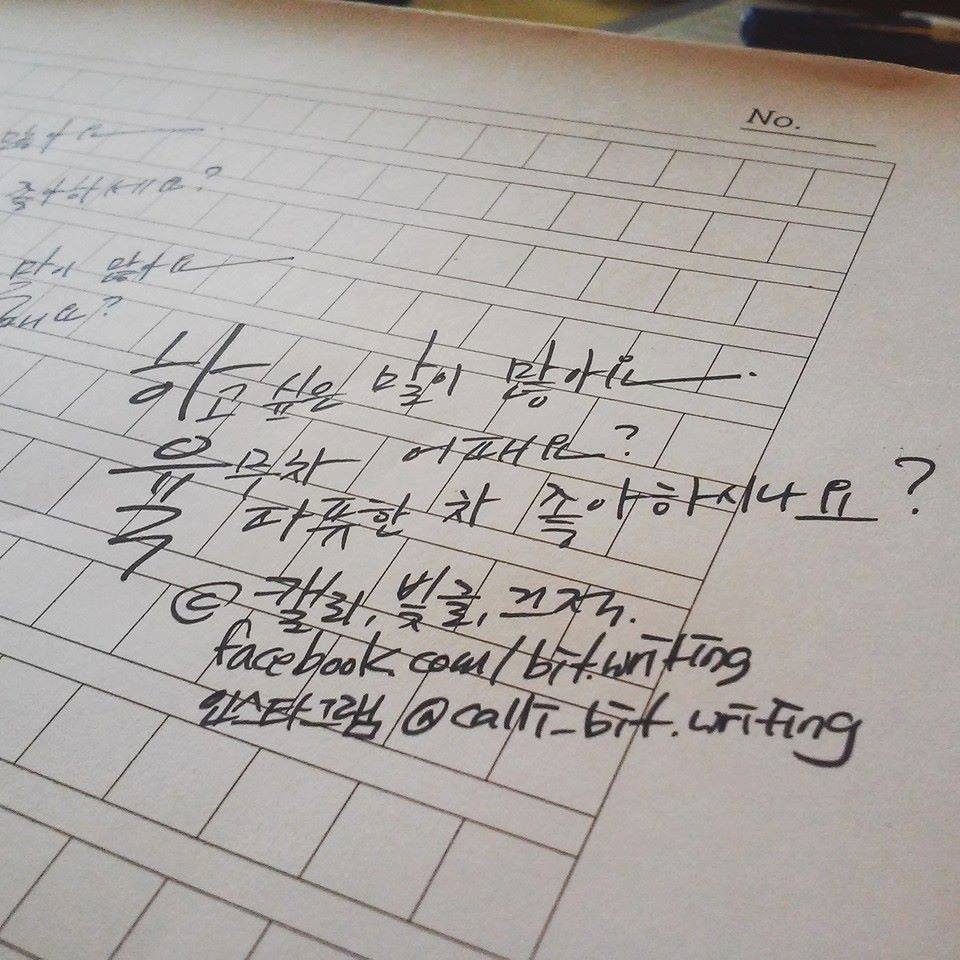 No.
많아요
좋아하세요?
말이 많아요
하고 싶은 말이 많아요.
율무차 어때요?
따뜻한 차 좋아하시나요?
© 캘리, 빛글, 끄적.
facebook.com/bit.writing
인스타그램 @calli_bit.writing